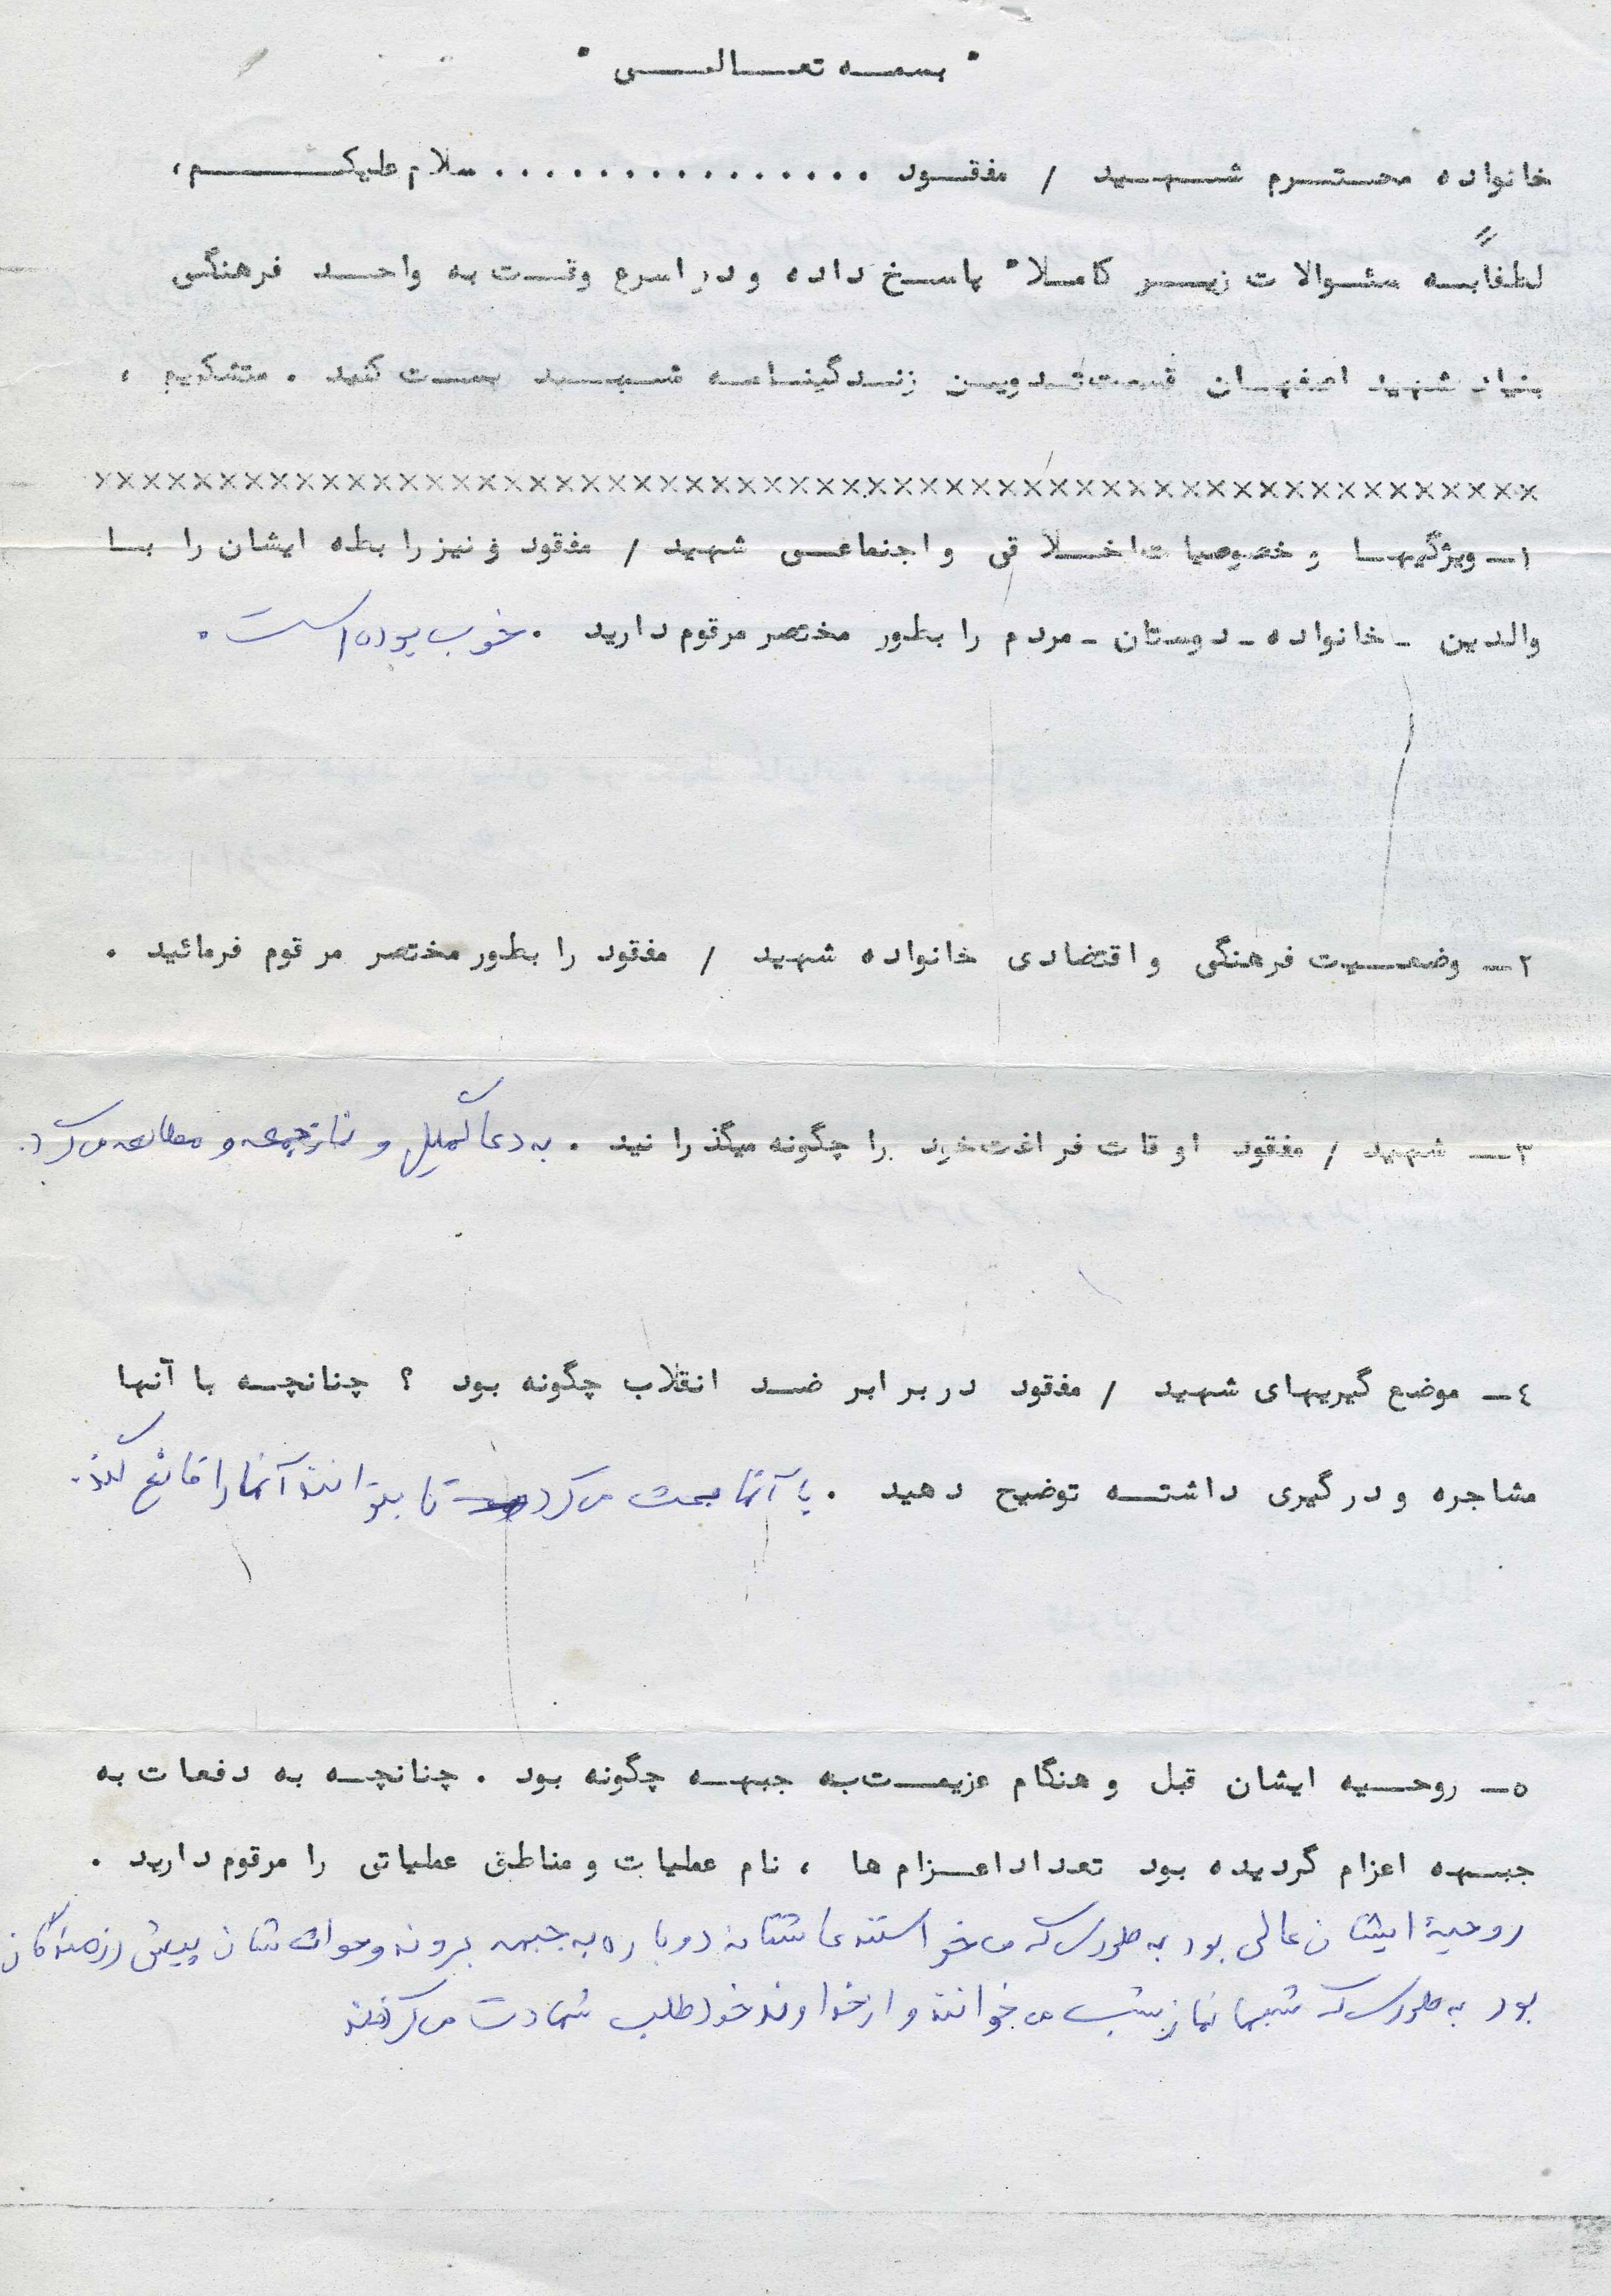 " بسمه تعالی "
خانواده محترم شهید / مفقود ................ سلام علیکم،
لطفاً به سئوالات زیر کاملا" پاسخ داده و در اسرع وقت به واحد فرهنگی
بنیاد شهید اصفهان قسمت تدوین زندگینامه شهید پست کنید . متشکریم ،
xxxxxxxxxxxxxxxxxxxxxxxxxxxxxxxxxxxxxxxxxxxxxxxxxxxxxxxx
۱ــ ویژگیها و خصوصیات اخلاقی و اجتماعی شهید / مفقود و نیز رابطه ایشان را با
والدین ـ خانواده ـ دوستان ـ مردم را بطور مختصر مرقوم دارید . خوب بوده است .
۲ــ وضعیت فرهنگی و اقتضادی خانواده شهید / مفقود را بطور مختصر مرقوم فرمائید .
۳ــ شهید / مفقود اوقات فراغت خود را چگونه میگذرانید . به دعا کمیل و نماز جمعه و مطالعه می کرد.
٤ــ موضع گیریهای شهید / مفقود در برابر ضد انقلاب چگونه بود ؟ چنانچه با آنها
مشاجره و درگیری داشته توضیح دهید . با آنها بحث می کرد تا بتوانند آنها را قانع کند.
۵ــ روحیه ایشان قبل و هنگام عزیمت به جبهه چگونه بود . چنانچه به دفعات به
جبهه اعزام گردیده بود تعداد اعزام ها ، نام عملیات و مناطق عملیاتی را مرقوم دارید .
روحیهٔ ایشان عالی بود به طوری که می خواستند عاشقانه دوباره به جبهه بروند و حواسشان پیش رزمندگان
بود به طوری که شبها نماز شب می خوانند و از خداوند خود طلب شهادت می کردند